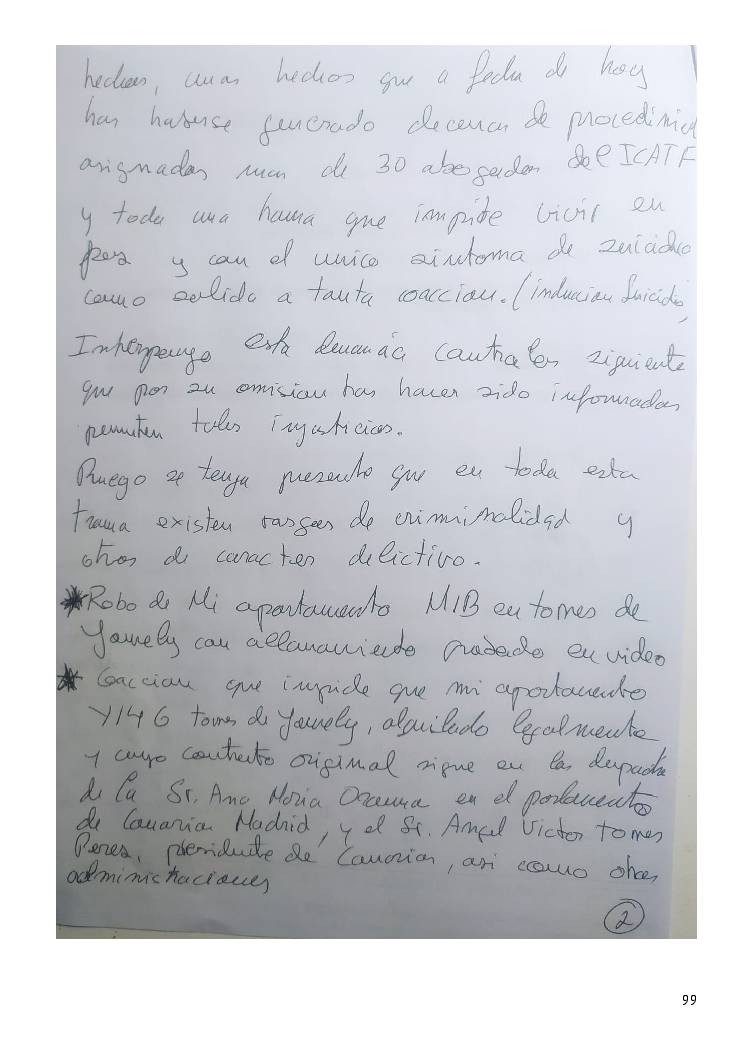 hechos, unos hechos que a fecha de hoy
han haberse generado decenas de procedimie
asignadas mas de 30 abogados del ICATF
y toda una hama que impide vivir en
paz y con el unico sintoma de suicidio
como salida a tanta coaccion. (inducion Suicidio,
Interpongo esta demanda contra los siguiente
que por su omision has haver sido informados
permiten tales injusticias.
Ruego se tenga presente que en toda esta
trama existen rasgos de criminalidad y
otros de caracter delictivo.
*Robo de Mi apartamento M1B en torres de
Yomely con allanamiento grabado en video
* Coaccion que impide que mi apartamento
Y14G torres de Yomely, alquilado legalmente
y cuyo contrato original sigue en los despacho
de la Sr. Ana Maria Oramna en el parlamento
de Canarias Madrid, y el Sr. Angel Victor torres
Peres, presidente de Canarias, asi como otras
administraciones
2
99